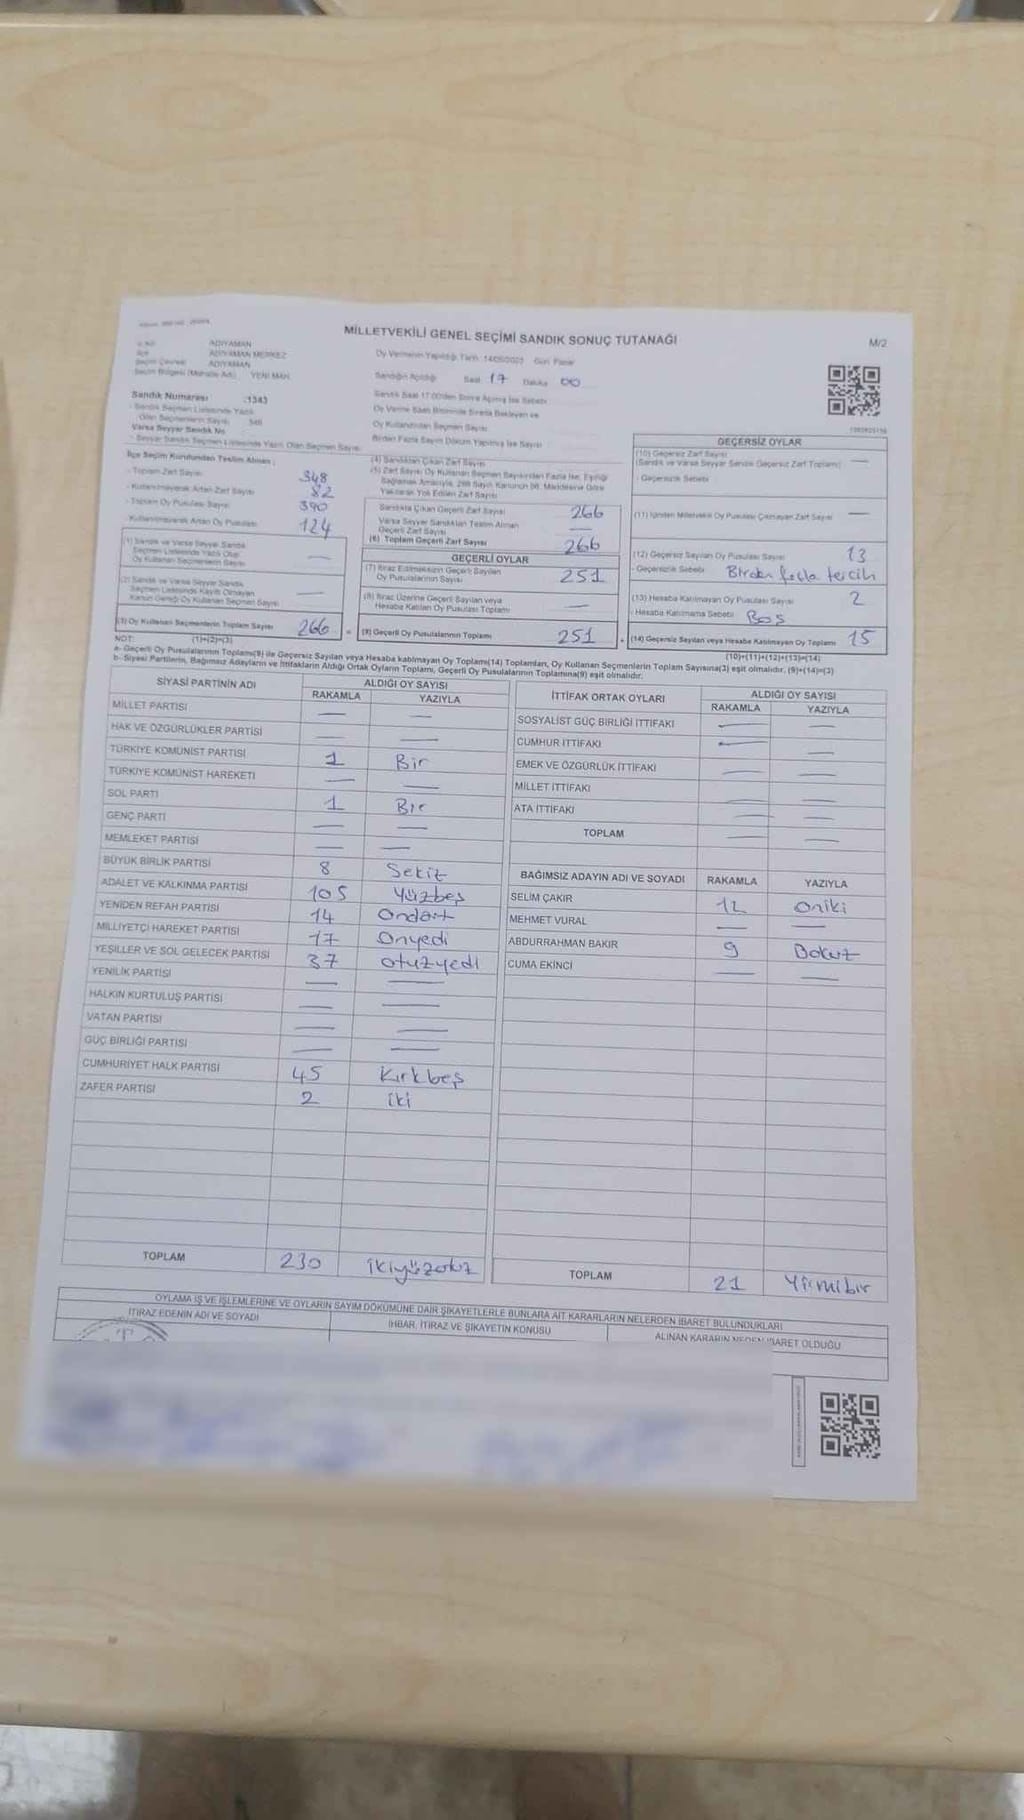 MİLLETVEKİLİ GENEL SEÇİMİ SANDIK SONUÇ TUTANAĞI
M/2
ADIYAMAN
İlçe ADIYAMAN MERKEZ
Seçim Çevresi ADIYAMAN
Seçim Bölgesi (Mahalle Adı) YENİ MAH.
Oy Vermenin Yapıldığı Tarih 14/05/2023 Gün Pazar
Sandığın Açıldığı Saat 17 Dakika 00
Sandık Numarası :1343
Sandık Seçmen Listesinde Yazılı
Olan Seçmenlerin Sayısı
Varsa Seyyar Sandık No
Seyyar Sandık Seçmen Listesinde Yazılı Olan Seçmen Sayısı
Sandık Saat 17.00'den Sonra Açılmış İse Sebebi
Oy Verme Saati Bitiminde Sırada Bekleyen ve
Oy Kullandırılan Seçmen Sayısı
Birden Fazla Sayım Döküm Yapılmış İse Sayısı
İlçe Seçim Kurulundan Teslim Alınan ;
- Toplam Zarf Sayısı 348
- Kullanılmayarak Artan Zarf Sayısı 82
- Toplam Oy Pusulası Sayısı 390
- Kullanılmayarak Artan Oy Pusulası 124
(1) Sandık ve Varsa Seyyar Sandık
Seçmen Listesinde Yazılı Olup
Oy Kullanan Seçmenlerin Sayısı —
(2) Sandık ve Varsa Seyyar Sandık
Seçmen Listesinde Kayıtlı Olmayan
Kanun Gereği Oy Kullanan Seçmen Sayısı —
(3) Oy Kullanan Seçmenlerin Toplam Sayısı 266
(1)+(2)=(3)
(4) Sandıktan Çıkan Zarf Sayısı
(5) Zarf Sayısı Oy Kullanan Seçmen Sayısından Fazla İse, Eşitliği
Sağlamak Amacıyla, 298 Sayılı Kanunun 98. Maddesine Göre
Yakılarak Yok Edilen Zarf Sayısı
Sandıkta Çıkan Geçerli Zarf Sayısı 266
Varsa Seyyar Sandıktan Teslim Alınan
Geçerli Zarf Sayısı —
(6) Toplam Geçerli Zarf Sayısı 266
GEÇERLİ OYLAR
(7) İtiraz Edilmeksizin Geçerli Sayılan
Oy Pusulalarının Sayısı 251
(8) İtiraz Üzerine Geçerli Sayılan veya
Hesaba Katılan Oy Pusulası Toplamı —
(9) Geçerli Oy Pusulalarının Toplamı 251
GEÇERSİZ OYLAR
(10) Geçersiz Zarf Sayısı
(Sandık ve Varsa Seyyar Sandık Geçersiz Zarf Toplamı) —
- Geçersizlik Sebebi
(11) İçinden Milletvekili Oy Pusulası Çıkmayan Zarf Sayısı —
(12) Geçersiz Sayılan Oy Pusulası Sayısı 13
- Geçersizlik Sebebi Birden fazla tercih
(13) Hesaba Katılmayan Oy Pusulası Sayısı 2
- Hesaba Katılmama Sebebi Boş
(14) Geçersiz Sayılan veya Hesaba Katılmayan Oy Toplamı 15
(10)+(11)+(12)+(13)=(14)
NOT:
a- Geçerli Oy Pusulalarının Toplamı(9) ile Geçersiz Sayılan veya Hesaba katılmayan Oy Toplamı(14) Toplamları, Oy Kullanan Seçmenlerin Toplam Sayısına(3) eşit olmalıdır. (9)+(14)=(3)
b- Siyasi Partilerin, Bağımsız Adayların ve İttifakların Aldığı Ortak Oyların Toplamı, Geçerli Oy Pusulalarının Toplamına(9) eşit olmalıdır.
SİYASİ PARTİNİN ADI ALDIĞI OY SAYISI
RAKAMLA YAZIYLA
MİLLET PARTİSİ — —
HAK VE ÖZGÜRLÜKLER PARTİSİ — —
TÜRKİYE KOMÜNİST PARTİSİ 1 Bir
TÜRKİYE KOMÜNİST HAREKETİ — —
SOL PARTİ 1 Bir
GENÇ PARTİ — —
MEMLEKET PARTİSİ — —
BÜYÜK BİRLİK PARTİSİ 8 Sekiz
ADALET VE KALKINMA PARTİSİ 105 Yüzbeş
YENİDEN REFAH PARTİSİ 14 Ondört
MİLLİYETÇİ HAREKET PARTİSİ 17 Onyedi
YEŞİLLER VE SOL GELECEK PARTİSİ 37 otuzyedi
YENİLİK PARTİSİ — —
HALKIN KURTULUŞ PARTİSİ — —
VATAN PARTİSİ — —
GÜÇ BİRLİĞİ PARTİSİ — —
CUMHURİYET HALK PARTİSİ 45 Kırkbeş
ZAFER PARTİSİ 2 iki
TOPLAM 230 ikiyüzotuz
İTTİFAK ORTAK OYLARI ALDIĞI OY SAYISI
RAKAMLA YAZIYLA
SOSYALİST GÜÇ BİRLİĞİ İTTİFAKI — —
CUMHUR İTTİFAKI — —
EMEK VE ÖZGÜRLÜK İTTİFAKI — —
MİLLET İTTİFAKI — —
ATA İTTİFAKI — —
TOPLAM — —
BAĞIMSIZ ADAYIN ADI VE SOYADI RAKAMLA YAZIYLA
SELİM ÇAKIR 12 oniki
MEHMET VURAL — —
ABDURRAHMAN BAKIR 9 Dokuz
CUMA EKİNCİ — —
TOPLAM 21 Yirmibir
OYLAMA İŞ VE İŞLEMLERİNE VE OYLARIN SAYIM DÖKÜMÜNE DAİR ŞİKAYETLERLE BUNLARA AİT KARARLARIN NELERDEN İBARET BULUNDUKLARI
İTİRAZ EDENİN ADI VE SOYADI
İHBAR, İTİRAZ VE ŞİKAYETİN KONUSU
ALINAN KARARIN NEDEN İBARET OLDUĞU